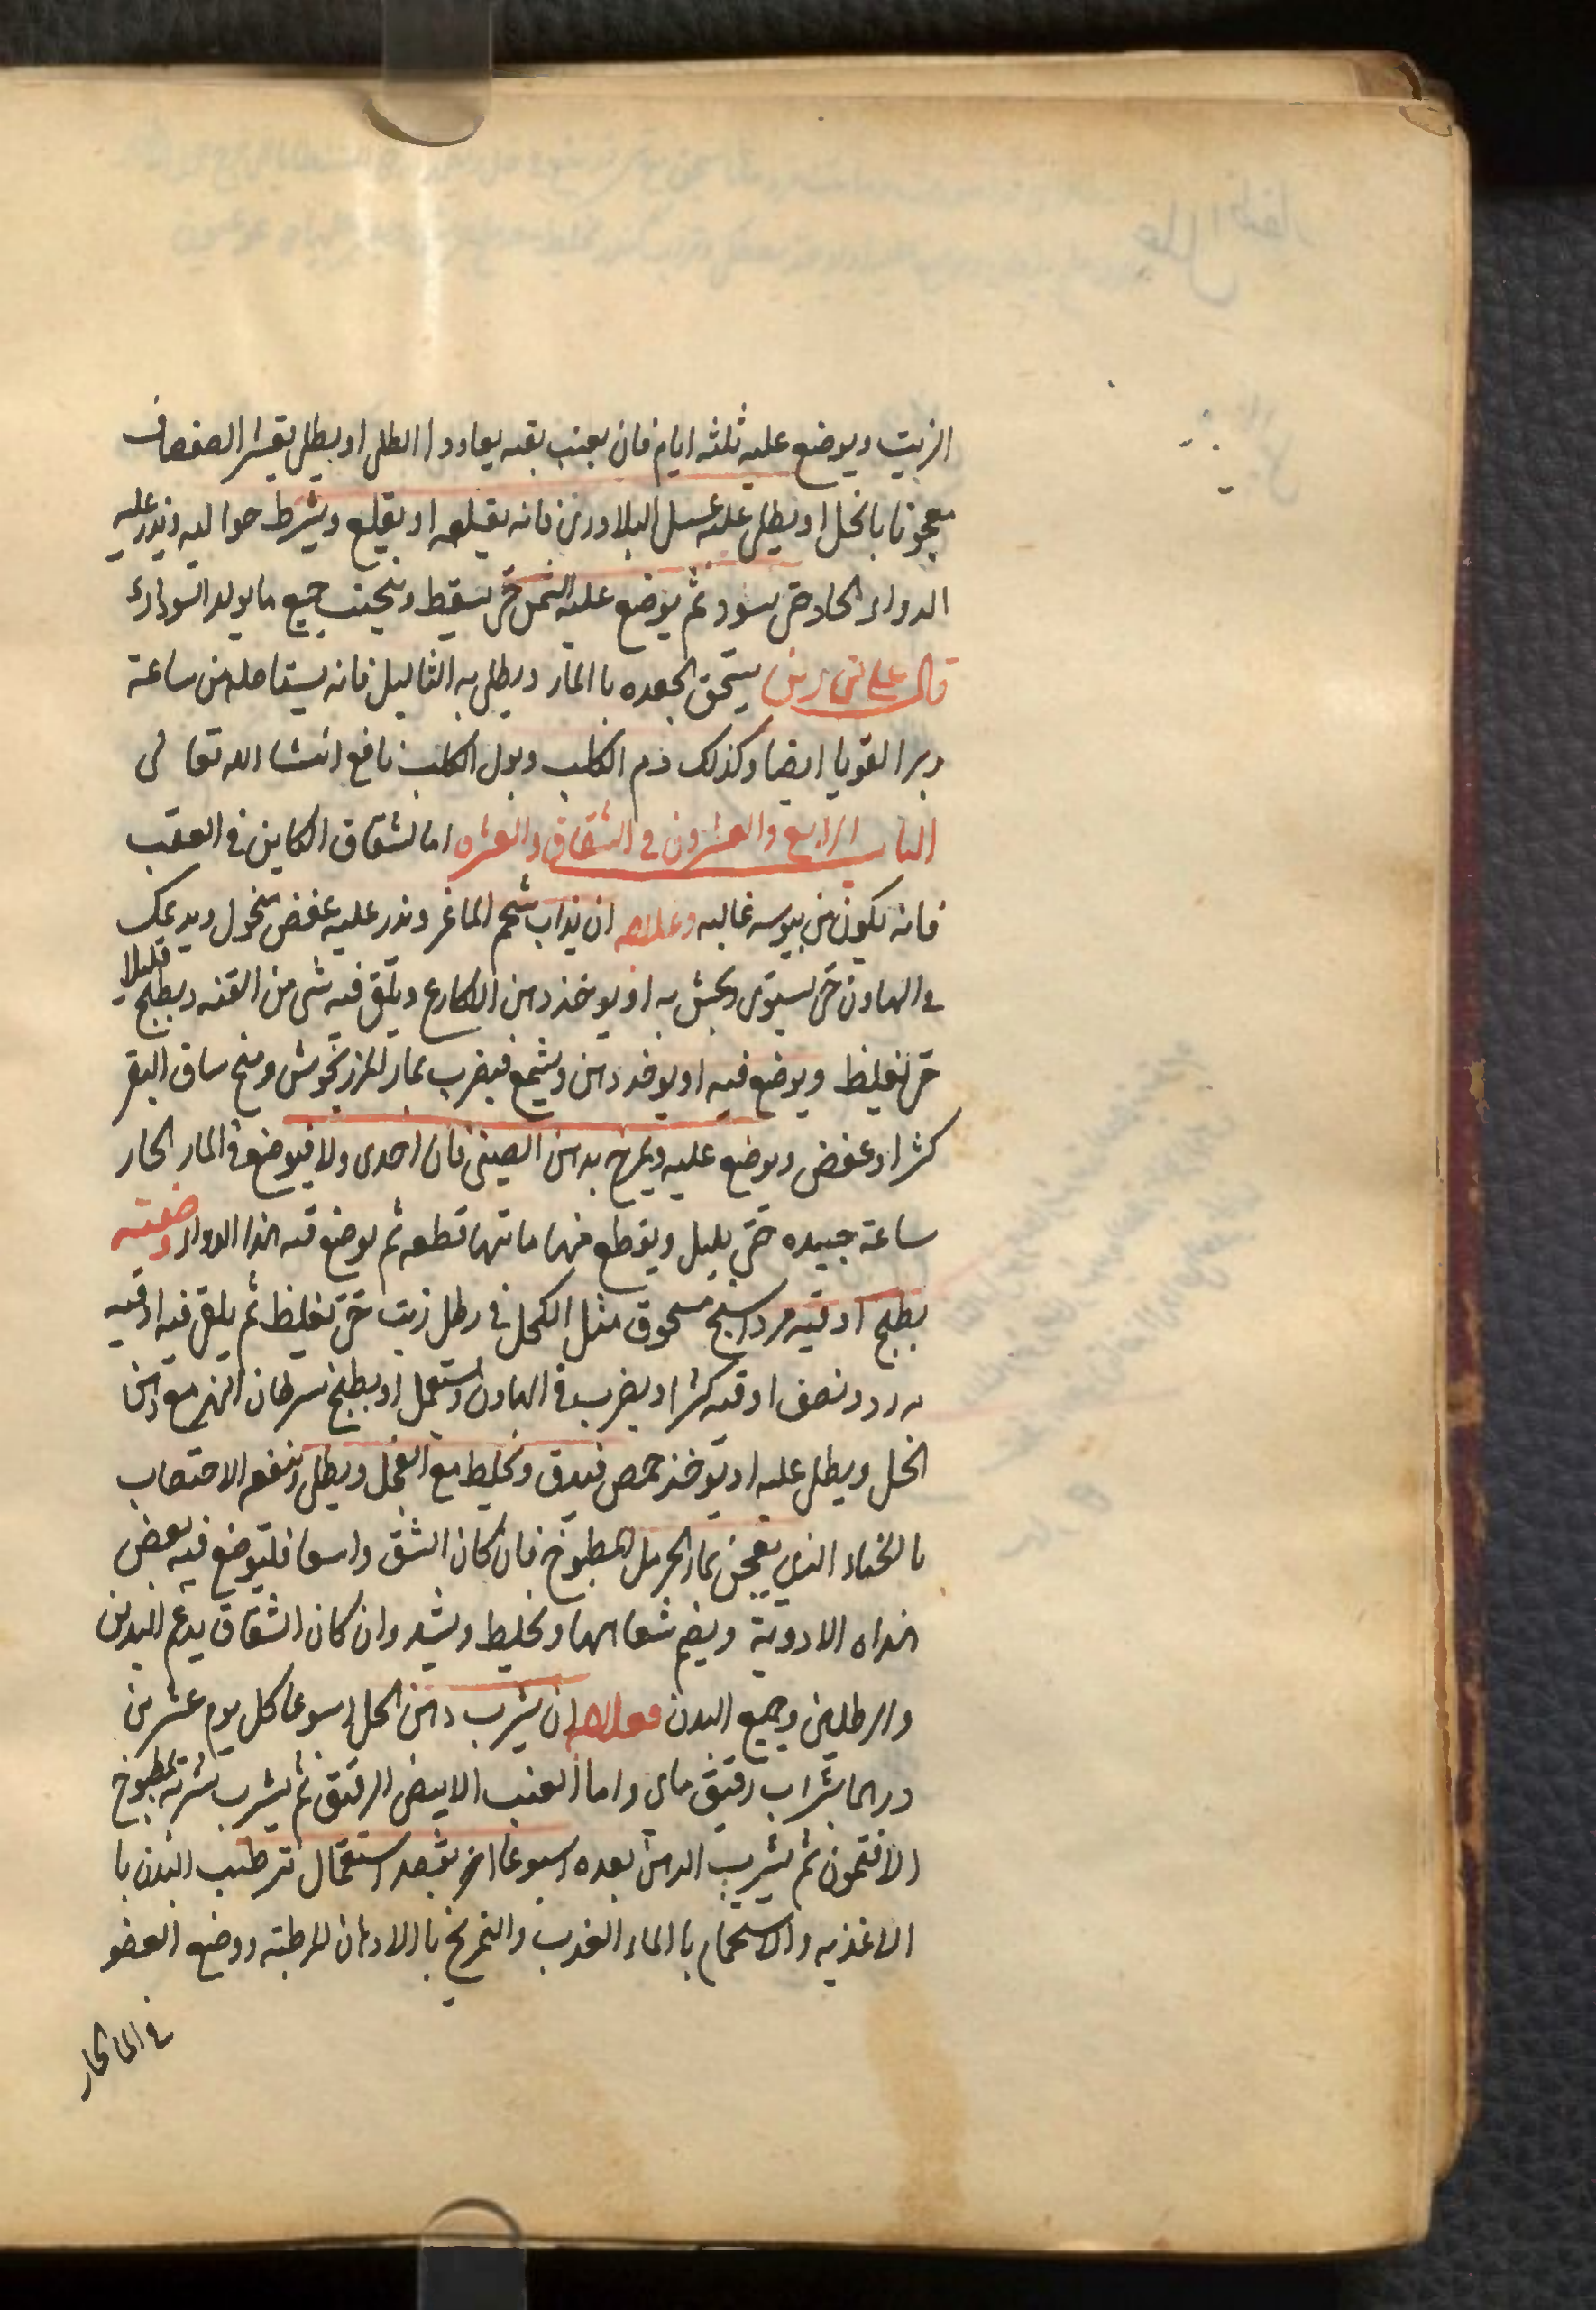 الزيت ويوضع عليه ثلثه ايام فان بعنب بقيه يعاود ا الطل او يطلى بقشر الصفصاف
معجونا بالخل او يطلى عليه عسل البلادرى فانه يقلعه او يقلع ويشرط حواليه ويذر عليه
الدواء الحاد حتى يسود ثم يوضع عليه السمن حتى يسقط ويجنب جميع ما يولد السوداء
قال على بن رين يسحق الجعده با الماء ويطلى به الثاليل فانه يستاصله من ساعة
ويبرا القوبا ايضا وكذلك دم الكلب وبول الكلب نافع انشا الله تعالى
الباب الرابع والعشرون فى الشقاق والعثره اما لشقاق الكاين فى العقب
فانه يكون من يبوسه غالبه وعلاجه ان يذاب شحم الماعز ويذر عليه عفص منخول ويدعك
فى الهاون حتى يستوى ويحشى به او يوخذ دهن الاكارع ويلقى فيه شى من القنه ويطبخ قليلا
حتى تغليظ ويوضع فيه او يوخد دهن وشمع فيضرب بماء المرزنجوش ومخ ساق البقر
كثرا وعفص ويوضع عليه ويمرخ بدهن الصينى فان اجدى ولا فيوضع فى الماء الحار
ساعة جيده حتى يلبل ويقطع منها ما تهيا قطعه ثم يوضع فيه هذا الدواء وصفته
يطبخ اوقيه مرداسنج مسحوق مثل الكحل فى رطل زيت حتى تغليظ ثم يلقى فيه اوقيه
ونصف اوقيه كثرا ويضرب فى الهاون ويستعمل او يطبخ سرطان النهر مع دهن
الخل ويطلى عليه او يوخذ حمص فيدق ويخليط مع الفجل ويطلى وينفع الاختصاب
بالحناء الذى يعجن بماء الحرمل المطبوخ فان كان الشق واسعا فليوضع فيه بعض
هذاه الادوية ويضم شفاهها ويخليط ويشد وان كان الشقاق يدعم اليدين
والرجلين وجميع البدن فعلاجه ان يشرب دهن الحل اسبوعا كل يوم عشرين
درهما بشراب رقيق ماى واما العنب الابيض الرقيق ثم يشرب شربة بمطبوخ
الافتمون ثم يشرب الدهن بعده اسبوعا اخر بقصد استعمال ترطيب البدن با
الاغذيه والاستحمام با الماء العذب والتمريخ با الادهان المرطبه ووضع العضو
فى الما الحار